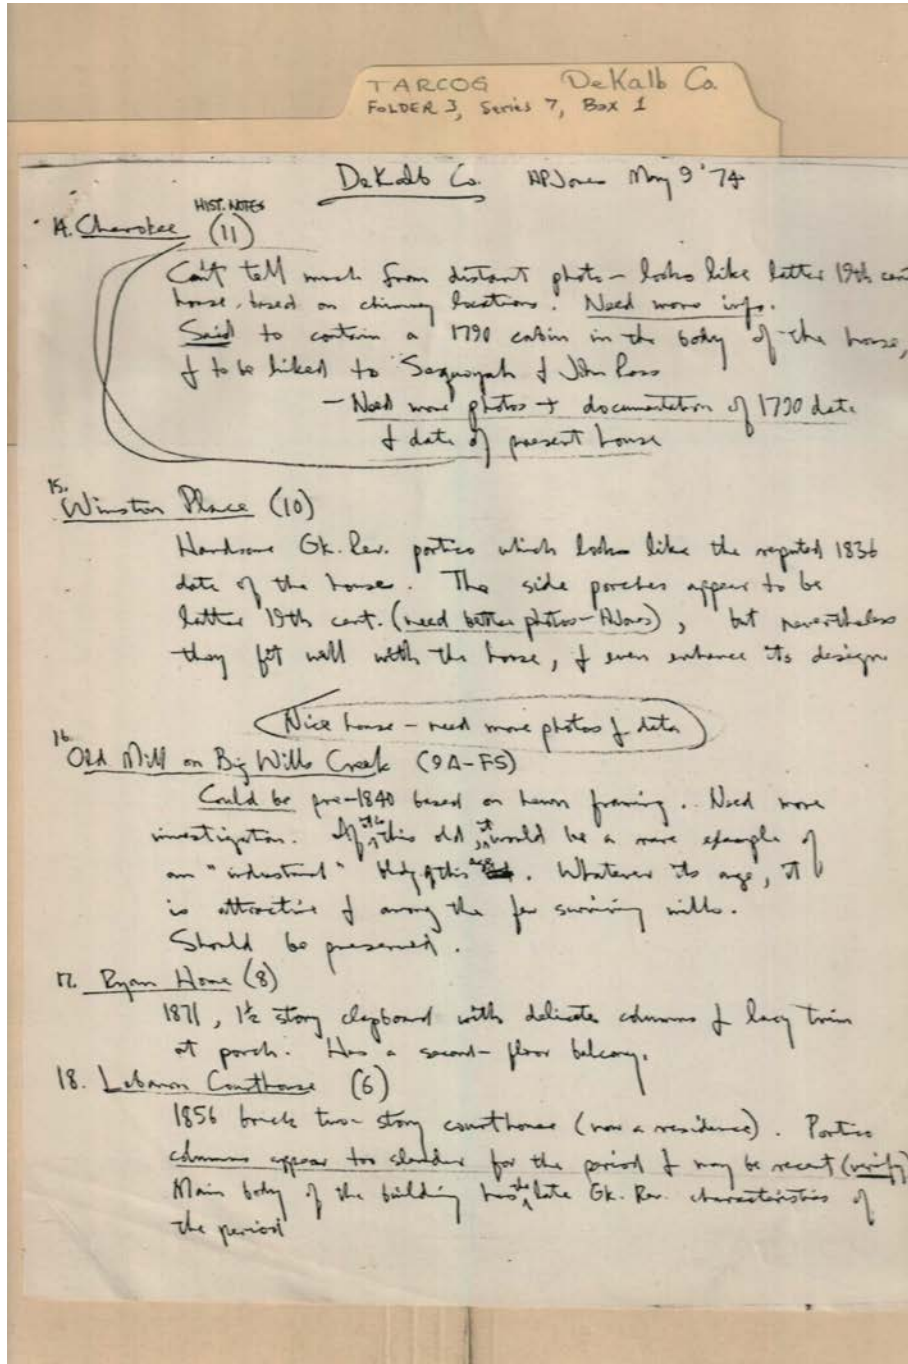 TARCOG DeKalb Co.
FOLDER 3, Series 7, Box 1
DeKalb Co. HPJones May 9 '74
HIST. NOTES
14. Cherokee (11)
Can't tell much from distant photo - looks like latter 19th cent
house based on chimney locations. Need more info.
Said to contain a 1790 cabin in the body of the house,
& to be linked to Sequoyah & John Ross
- Need more photos + documentation of 1790 date
& date of present house
15. Winston Place (10)
Handsome Gk. Rev. portico which looks like the reputed 1836
date of the house. The side porches appear to be
latter 19th cent. (need better photos - ), but nevertheless
they fit well with the house, & even enhance its design
Nice house - need more photos & data
16. Old Mill on Big Wills Creek (9A-F5)
Could be pre-1840 based on hewn framing. Need more
investigation. If it is this old, it would be a rare example of
an "industrial" bldg of this age. Whatever its age, it
is attractive & among the few surviving mills.
Should be preserved.
17. Ryan Home (8)
1871, 1½ story clapboard with delicate columns & lacy trim
at porch. Has a second-floor balcony.
18. Lebanon Courthouse (6)
1856 brick two-story courthouse (now a residence). Portico
columns appear too slender for the period & may be recent (verify)
Main body of the building has the late Gk. Rev. characteristics of
the period